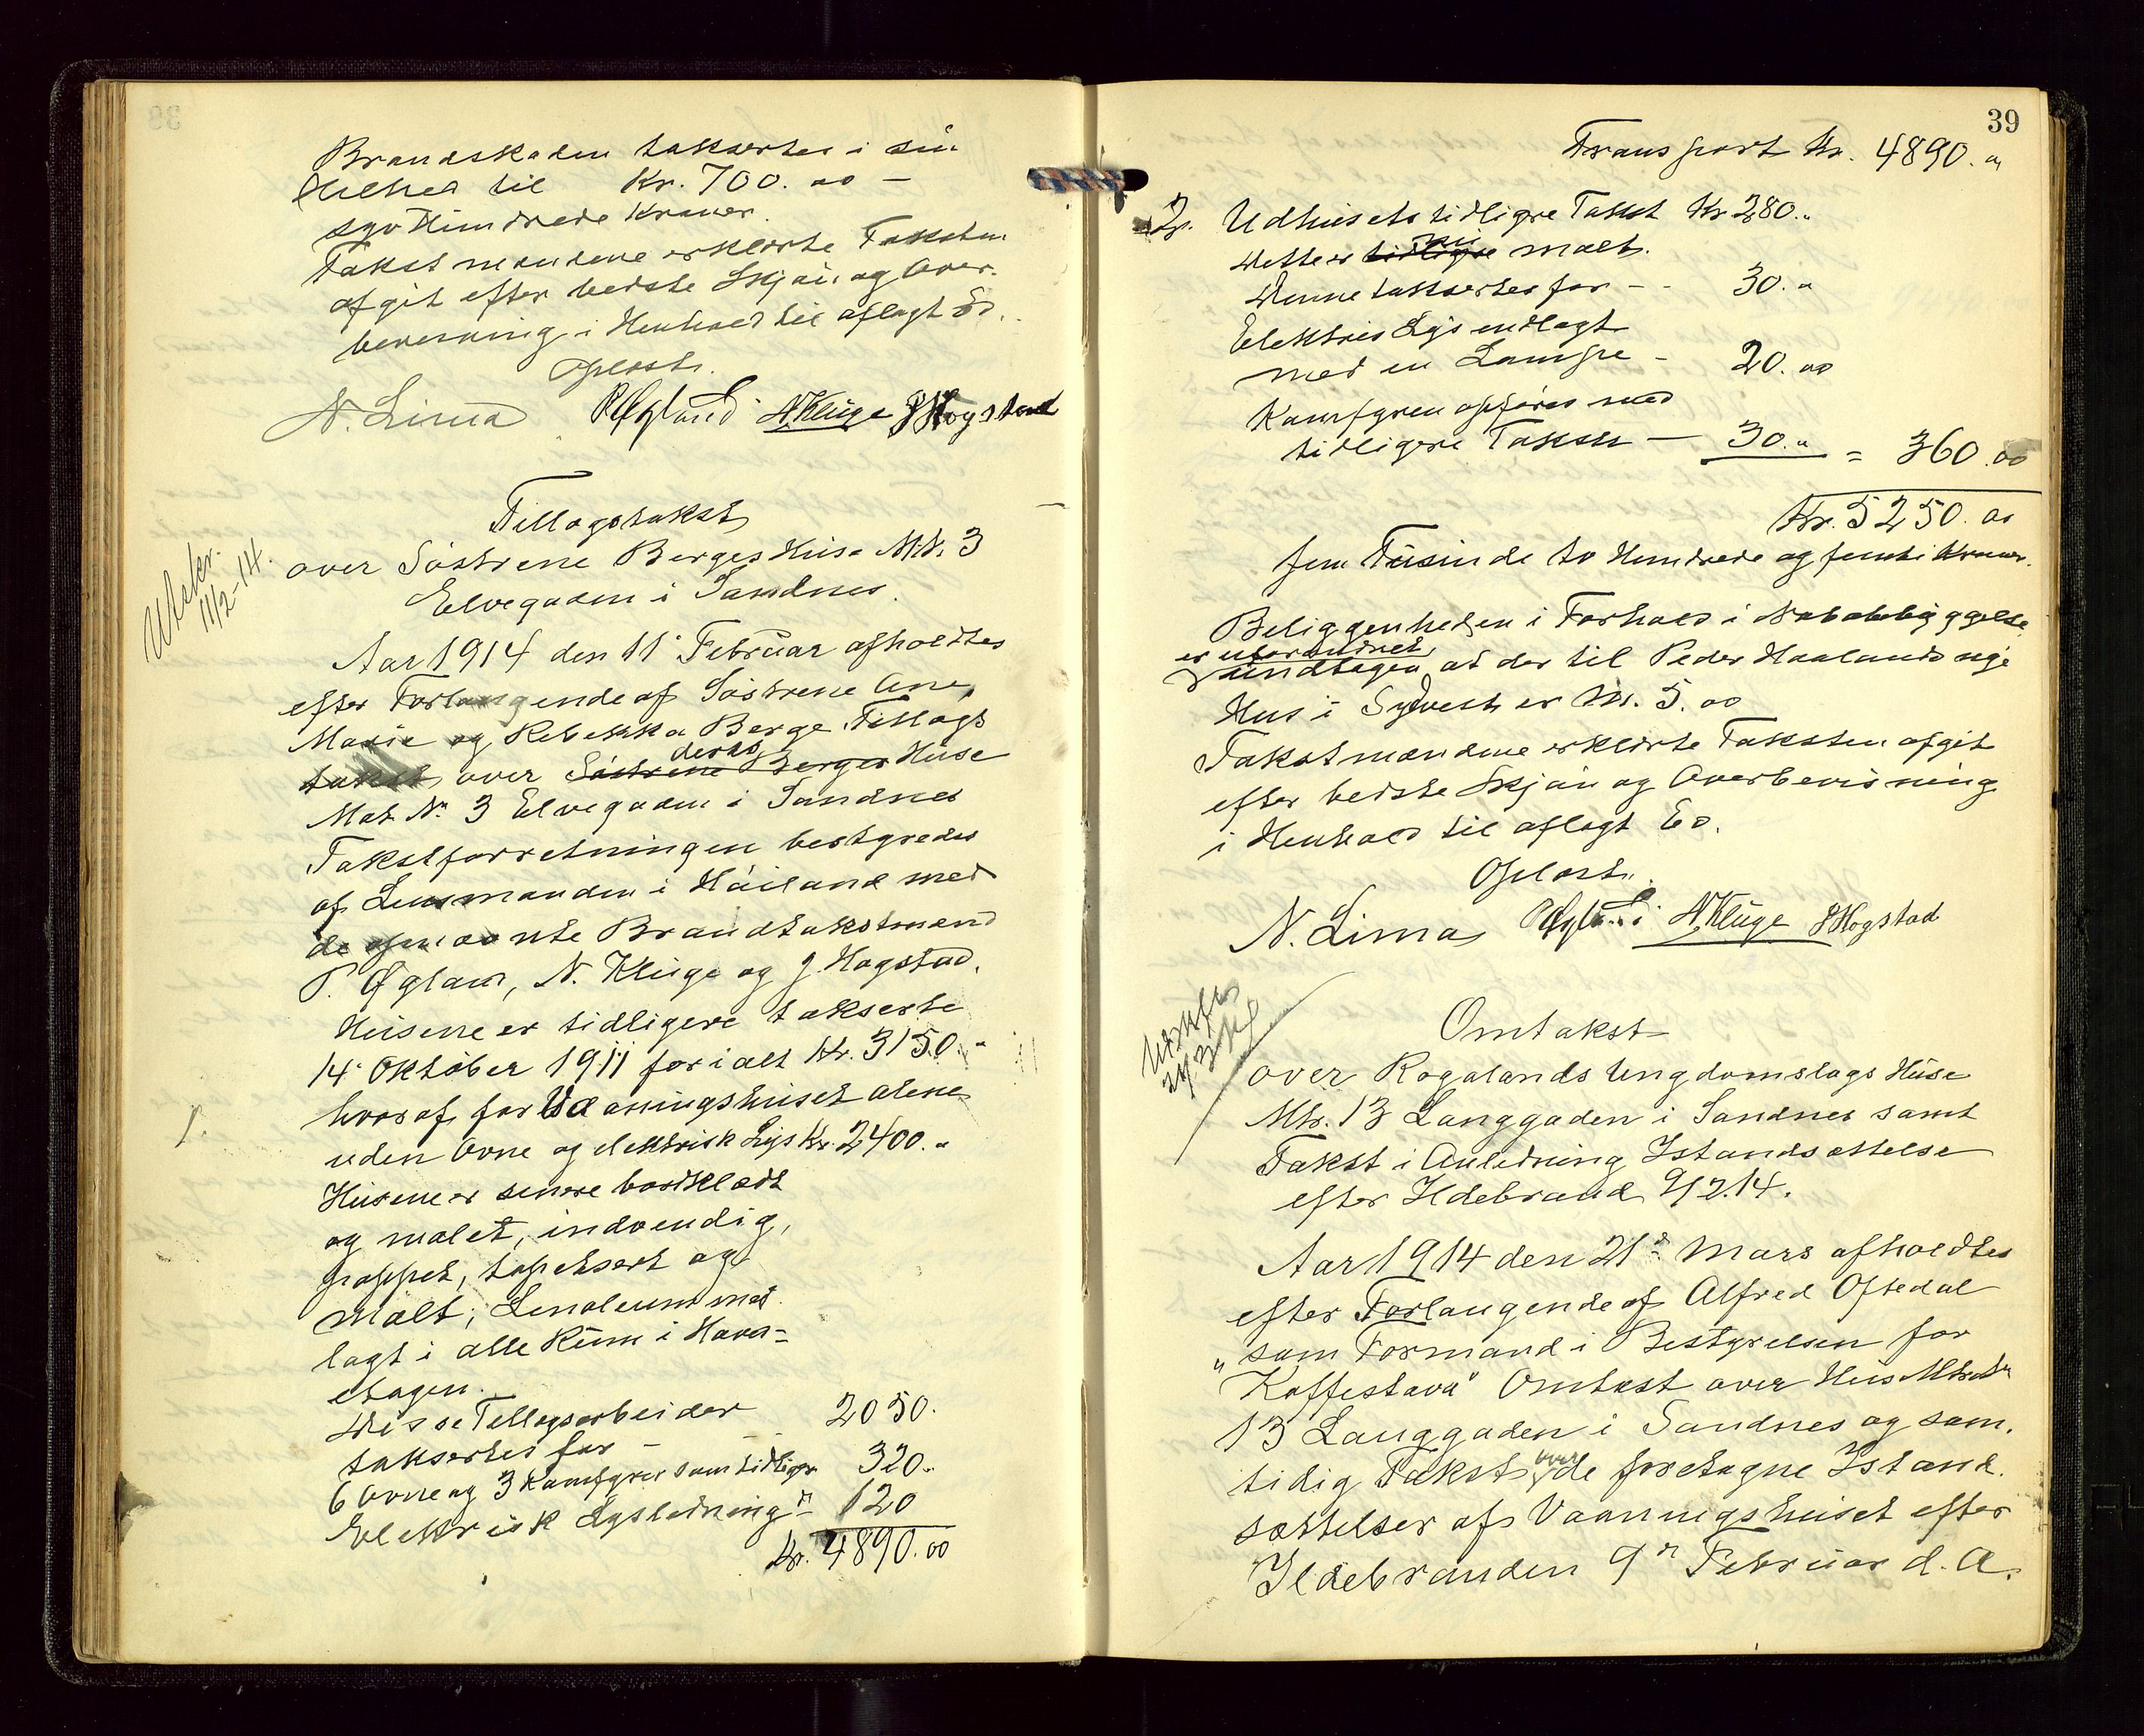 Brandskaden taksertes i sin
Helhed til Kr. 700.00 –
syv Hundrede Kroner.
Takstmændene erklærte Taksten
afgit efter bedste Skjøn og Over-
bevisning i Henhold til aflagt Ed.
Oplæst.
N. Lima P Øgland N Kluge J Hogstad
Tillægstakst
over Søstrene Berges Huse M.N. 3
Elvegaden i Sandnes.
Utskr.
11/2-14.
Aar 1914 den 11' Februar afholdtes
efter Forlangende af Søstrene Ane,
Marie og Rebekka Berge Tillægs
takst over Søstrene Berges deres Huse
Mat. No. 3 Elvegaden i Sandnes
Takstforretningen bestyredes
af Lensmanden i Høiland med
de opnævnte Brandtakstmænd
P. Øgland, N. Kluge og J. Hogstad.
Husene er tidligere takserte
14' Oktober 1911 for ialt Kr. 3150.-
1. hvoraf for Vaaningshuset alene
uden Ovne og elektrisk Lys Kr. 2400.-
Husene er senere bordklædt
og malet, indvendig,
pappet, tapetsert og
malt; Linoleum med
lagt i alle Rum i Hoved-
etagen.
Disse Tillægsarbeider
taksertes for – – 2050.
6 Ovne og 3 Kamfyrer som tidligere 320..
Elektrisk Lysledning " 120
Kr. 4890.00
39
Transport Kr. 4890.00
2. Udhusets tidligere Takst Kr 280..
Dette er tidligere nu malt.
Denne taksertes for - - 30.00
Elektrisk Lys indlagt
med en Lampe - 20.00
Kamfyren opføres med
tidligere Takst – 30.00 = 360.00
Kr. 5250.00
fem Tusinde to Hundrede og femti Kroner.
Beliggenheden i Forhold i Nabobebyggelse
er uforandret
undtagen at der til Peder Haalands nye
Hus i Sydvest er M. 5.00
Takstmændene erklærte Taksten afgit
efter bedste Skjøn og Overbevisning
i Henhold til aflagt Ed.
Oplæst.
N. Lima P Øgland N Kluge J Hogstad
Omtakst
over Rogalands Ungdomslags Huse
Mtr. 13 Langgaden i Sandnes samt
Takst i Anledning Istandsættelse
efter Ildebrand 9/2.14.
Aar 1914 den 21de Mars afholdtes
efter Forlangende af Alfred Oftedal
som Formand i Bestyrelsen for
"Kaffestova" Omtakst over Hus Mtr. No
13 Langgaden i Sandnes og sam-
tidig Takst over de foretagne Istand-
sættelser af Vaaningshuset efter
Ildebranden 9' Februar d.A.